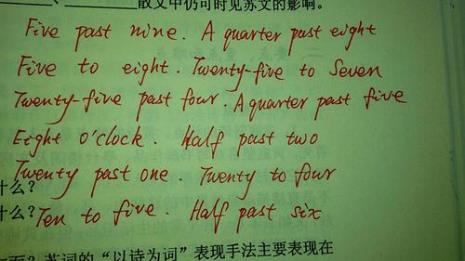 散文中仍可时见苏文的影响。
Five past nine. A quarter past eight
Five to eight. Twenty-five to Seven
Twenty-five past four. A quarter past five
Eight o'clock. Half past two
Twenty past one. Twenty to four
什么?
什么? Ten to five. Half past six
苏词的“以诗为词”表现手法主要表现在